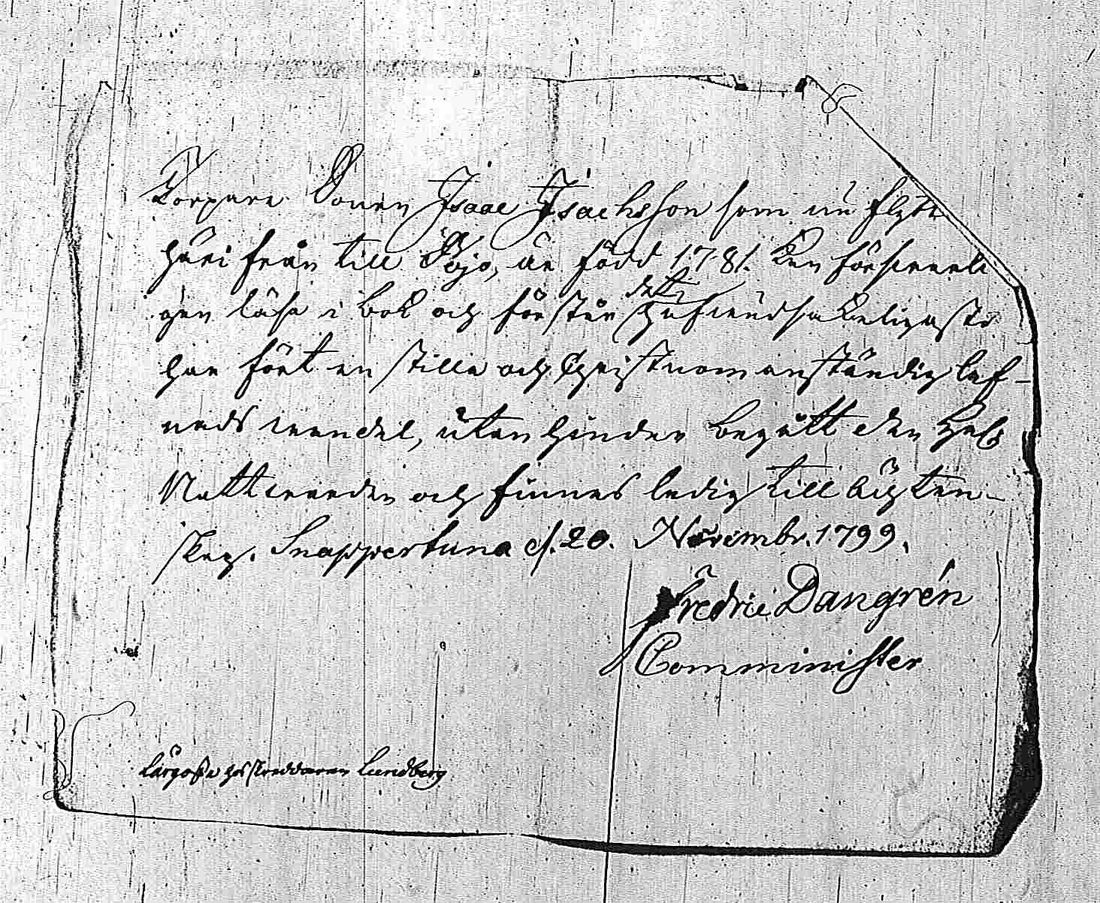 Torpare Sonen Isaac Isachsson som nu flyttr
häri från till Pojo, är född 1781. Kan försvarli
gen läsa i bok och förstår det hufvudsakeligaste
har fört en stilla och Christnom anständig lef-
nads wandel, utan hinder begått den Helg
Nattwarden och finnes ledig till ächten-
skap. Snappertuna d. 20. Novembr. 1799.
Fredric Dangrén
Comminister
Lärgosse hos skreddaren Lundberg